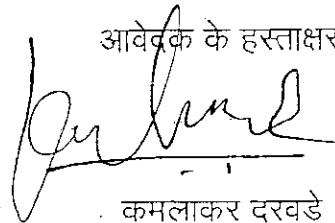 आवेदक के हस्ताक्षर
कमलाकर दरवडे